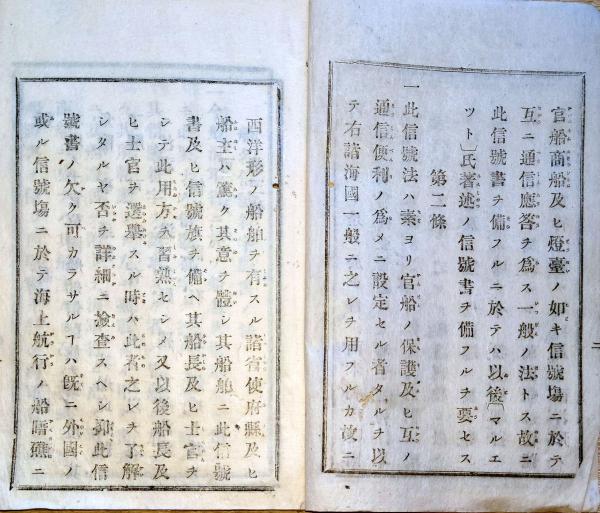 官船商船及ヒ燈臺ノ如キ信號塲ニ於テ
互ニ通信應答ヲ爲ス一般ノ法トス故ニ
此信號書ヲ備フルニ於テハ以後〔マルエ
ツト〕氏著述ノ信號書ヲ備フルヲ要セス
第二條
一此信號法ハ素ヨリ官船ノ保護及ヒ互ノ
通信便利ノ爲メニ設定セル者タルヲ以
テ右諸海國一般ニ之レヲ用フルカ故ニ
二
西洋形ノ船舶ヲ有スル諸省使府縣及ヒ
船主ハ篤ク其意ヲ體シ其船舶ニ此信號
書及ヒ信號旗ヲ備ヘ其船長及ヒ士官ヲ
シテ此用方ニ習熟セシメ又以後船長及
ヒ士官ヲ選擧スル時ハ此者之レヲ了解
シタルヤ否ヲ詳細ニ檢査スヘシ抑此信
號書ノ欠ク可カラサルヿハ既ニ外國ノ
或ル信號塲ニ於テ海上航行ノ船暗礁ニ